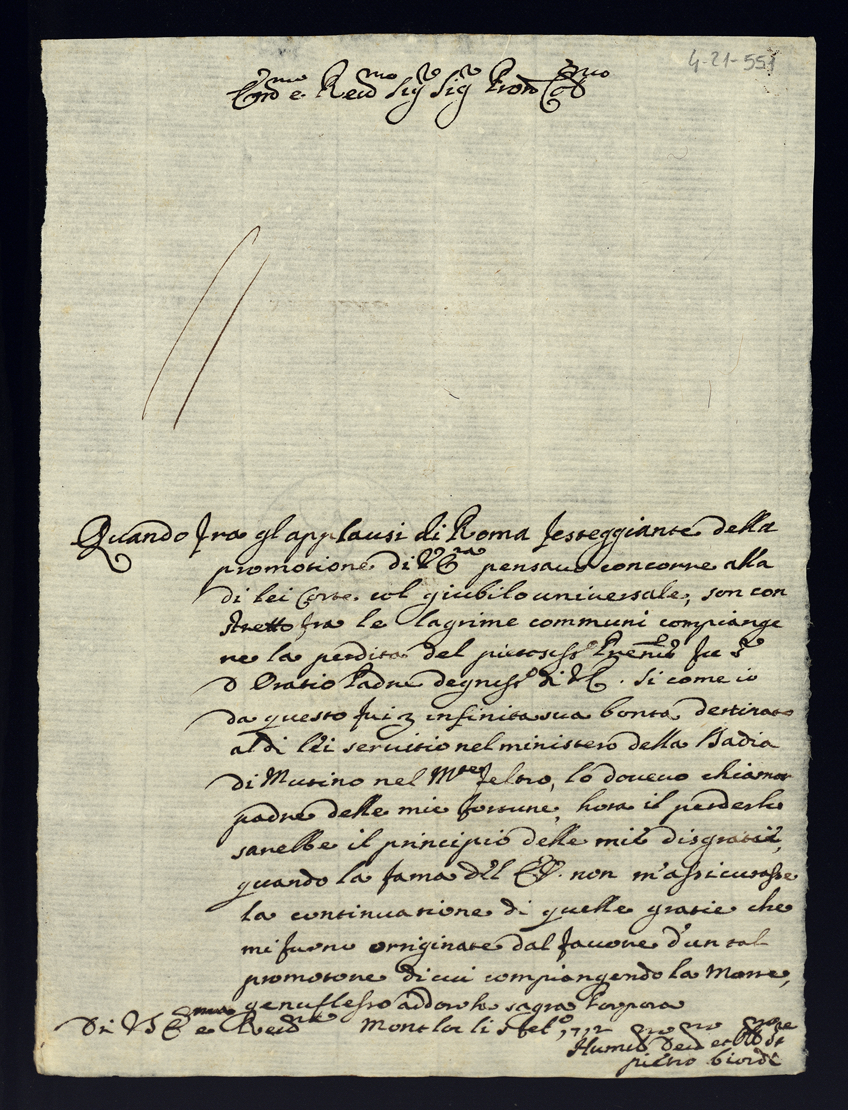 4-21-55
Em.mo e Reu.mo Sig.r Sig.r Pron Col.mo
Quando fra gl applausi di Roma festeggiante della
promotione di V E.za pensauo concorre alla
di lei Corte col giubilo uniuersale, son con
stretto fra le lagrime communi compiange
re la perdita del pietosiss.o fu S.r
D Oratio Padre degniss.o di V E. si come io
da questo fui infinita sua bontà destinato
al di lei seruitio nel ministero della Badia
di Mutino nel M.te feltro, lo doueuo chiamar
padre delle mie fortune, hora il perderlo
sarebbe il principio delle mie disgratie,
quando la fama dell E. non m'assicurasse
la continuatione di quelle gratie che
mi furno originate dal fauore d'un tal
promotore di cui compiangendo la Morte,
genuflesso adoro la sagra Porpora
Di V S E.ma e Reu.ma Montlo li 5 feb.o 1712
Humil.mo Deu.mo et Obb.mo Se.re
pietro biordi